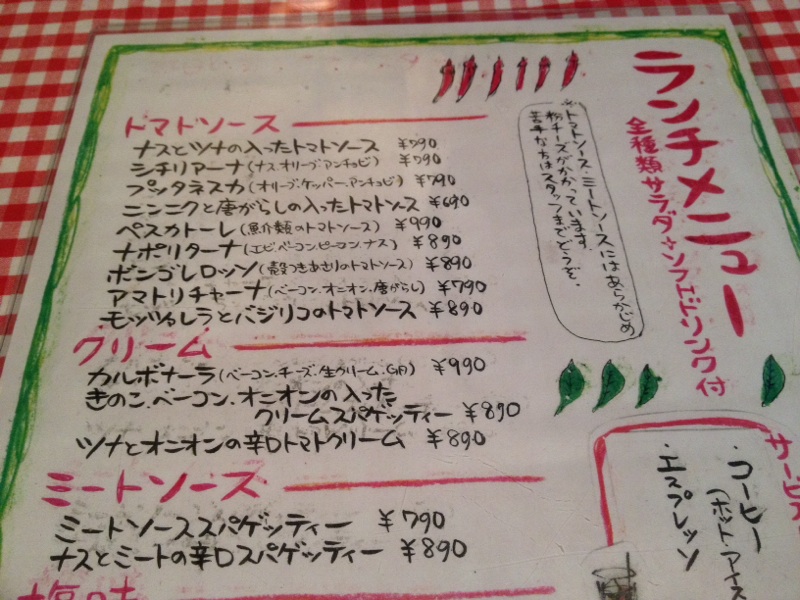 ランチメニュー
全種類サラダ+ソフトドリンク付
※トマトソース・ミートソースにはあらかじめ
粉チーズがかかっています。
苦手な方はスタッフまでどうぞ。
トマトソース
ナスとツナの入ったトマトソース ¥790
シチリアーナ(ナス.オリーブ.アンチョビ) ¥790
プッタネスカ(オリーブ.ケッパー.アンチョビ) ¥790
ニンニクと唐がらしの入ったトマトソース ¥690
ペスカトーレ(魚介類のトマトソース) ¥990
ナポリターナ(エビ.ベーコン.ピーマン.ナス) ¥890
ボンゴレロッソ(殻つきあさりのトマトソース) ¥890
アマトリチャーナ(ベーコン.オニオン.唐がらし) ¥790
モッツァレラとバジリコのトマトソース ¥890
クリーム
カルボナーラ(ベーコン.チーズ.生クリーム.卵) ¥990
きのこ.ベーコン.オニオンの入った
クリームスパゲッティー ¥890
ツナとオニオンの辛口トマトクリーム ¥890
ミートソース
ミートソーススパゲッティー ¥790
ナスとミートの辛口スパゲッティー ¥890
塩味
サービス
・コーヒー
(ホット・アイス
・エスプレッソ